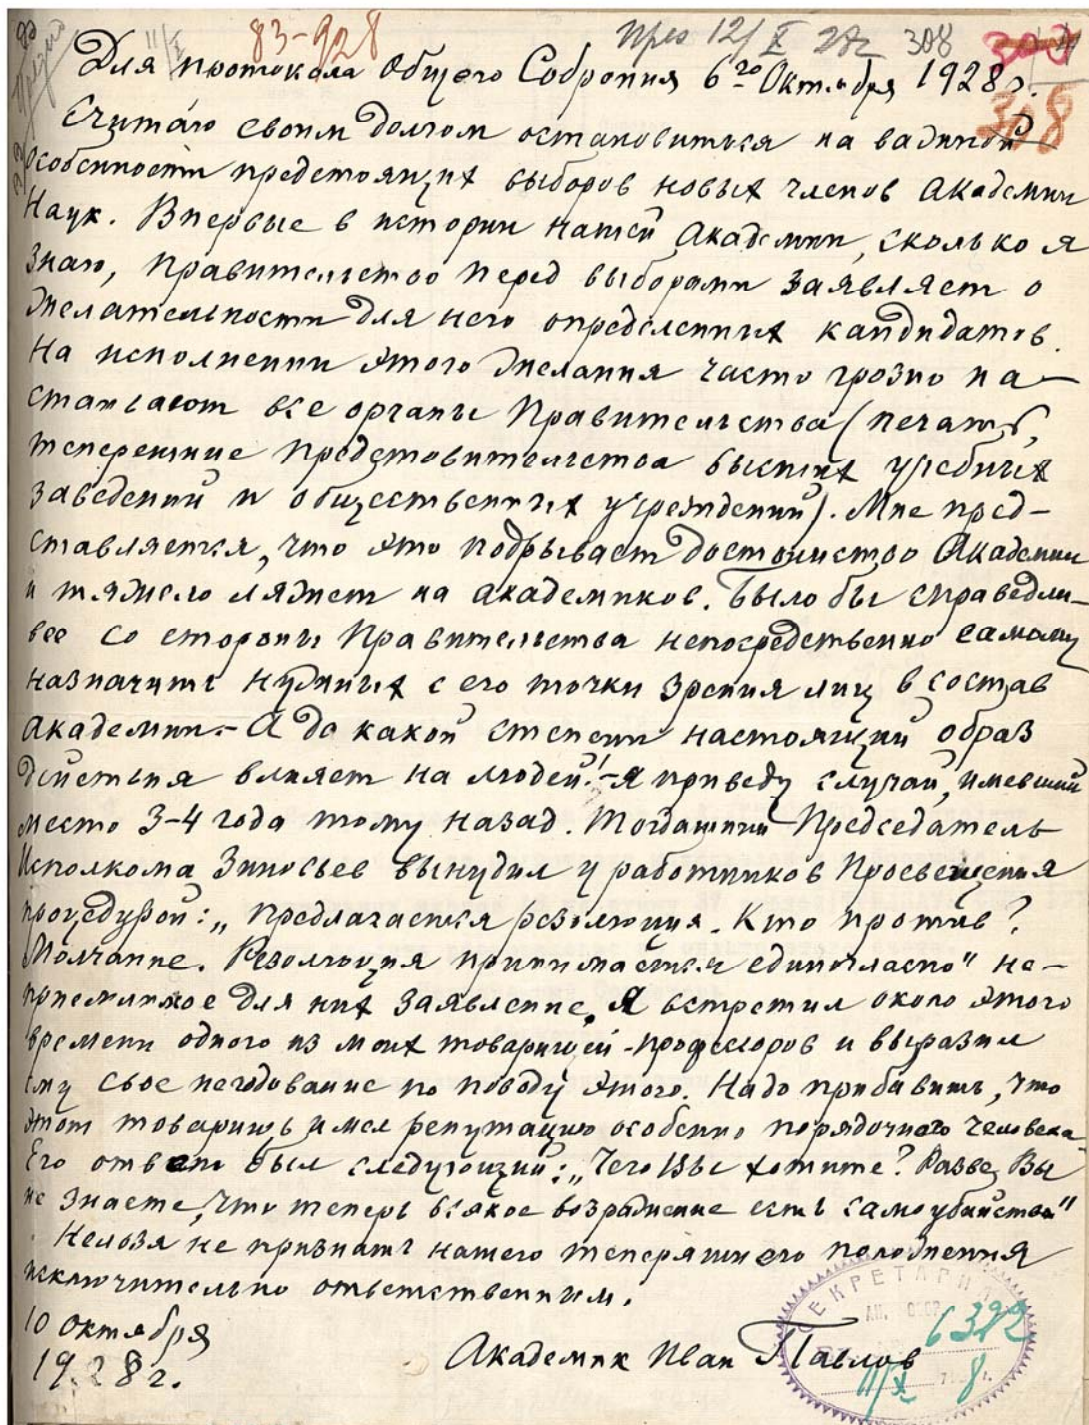 11/X 83-928 през 12/X 28г 308
308
Для протокола Общего Собрания 6го Октября 1928 г.
Считаю своим долгом остановиться на важной
особенности предстоящих выборов новых членов Академии
Наук. Впервые в истории нашей Академии, сколько я
знаю, Правительство перед выборами заявляет о
желательности для него определенных кандидатов.
На исполнении этого желания часто грозно на-
стаивают все органы Правительства (печать,
теперешние представительства высших учебных
заведений и общественных учреждений). Мне пред-
ставляется, что это подрывает достоинство Академии
и тяжело ляжет на академиков. Было бы справедли-
вее со стороны Правительства непосредственно самому
назначить нужных с его точки зрения лиц в состав
Академии.- А до какой степени настоящий образ
действия влияет на людей!-Я приведу случай, имевший
место 3-4 года тому назад. Тогдашний Председатель
Исполкома Зиновьев вынудил у работников Просвещения
процедурой: „предлагается резолюция. Кто против?
Молчание. Резолюция принимается единогласно" не-
приемлимое для них заявление. Я встретил около этого
времени одного из моих товарищей-профессоров и выразил
ему свое негодование по поводу этого. Надо прибавить, что
этот товарищ имел репутацию особенно порядочного человека.
Его ответ был следующий: „Чего Вы хотите? Разве Вы
не знаете, что теперь всякое возражение есть самоубийство"
Нельзя не признать нашего теперяшнего положения
исключительно ответственным.
10 октября
1928 г.
Академик Иван Павлов
СЕКРЕТАРИАТ
6382
11/X 8